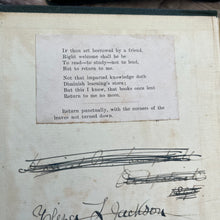 If thou art borrowed by a friend,
Right welcome shall he be
To read—to study—not to lend,
But to return to me.
Not that imparted knowledge doth
Diminish learning's store;
But this I know, that books once lent
Return to me no more.
Return punctually, with the corners of the
leaves not turned down.
L Jackson